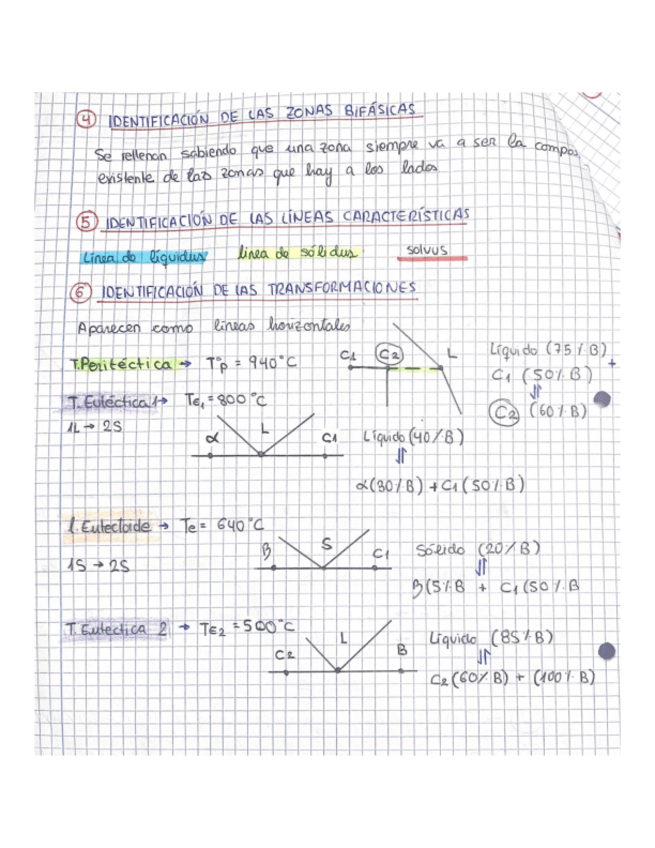 ④ IDENTIFICACIÓN DE LAS ZONAS BIFÁSICAS
Se rellenan sabiendo que una zona siempre va a ser la compos.
existente de las zonas que hay a los lados
⑤ IDENTIFICACIÓN DE LAS LÍNEAS CARACTERÍSTICAS
Línea de líquidus línea de sólidus solvus
⑥ IDENTIFICACIÓN DE LAS TRANSFORMACIONES
Aparecen como líneas horizontales
T.Peritéctica → T°p = 940°C
C1 C2 L
Líquido (75% B) +
C1 (50% B)
⇅
C2 (60% B)
T. Eutéctica 1 → TE1 = 800°C
1L → 2S
α L C1
Líquido (40% B)
⇅
α(30% B) + C1 (50% B)
T. Eutectoide → Te = 640°C
1S → 2S
B S C1
Sólido (20% B)
⇅
B(5% B + C1 (50% B
T. Eutéctica 2 → TE2 = 500°C
C2 L B
Líquido (85% B)
⇅
C2 (60% B) + (100% B)